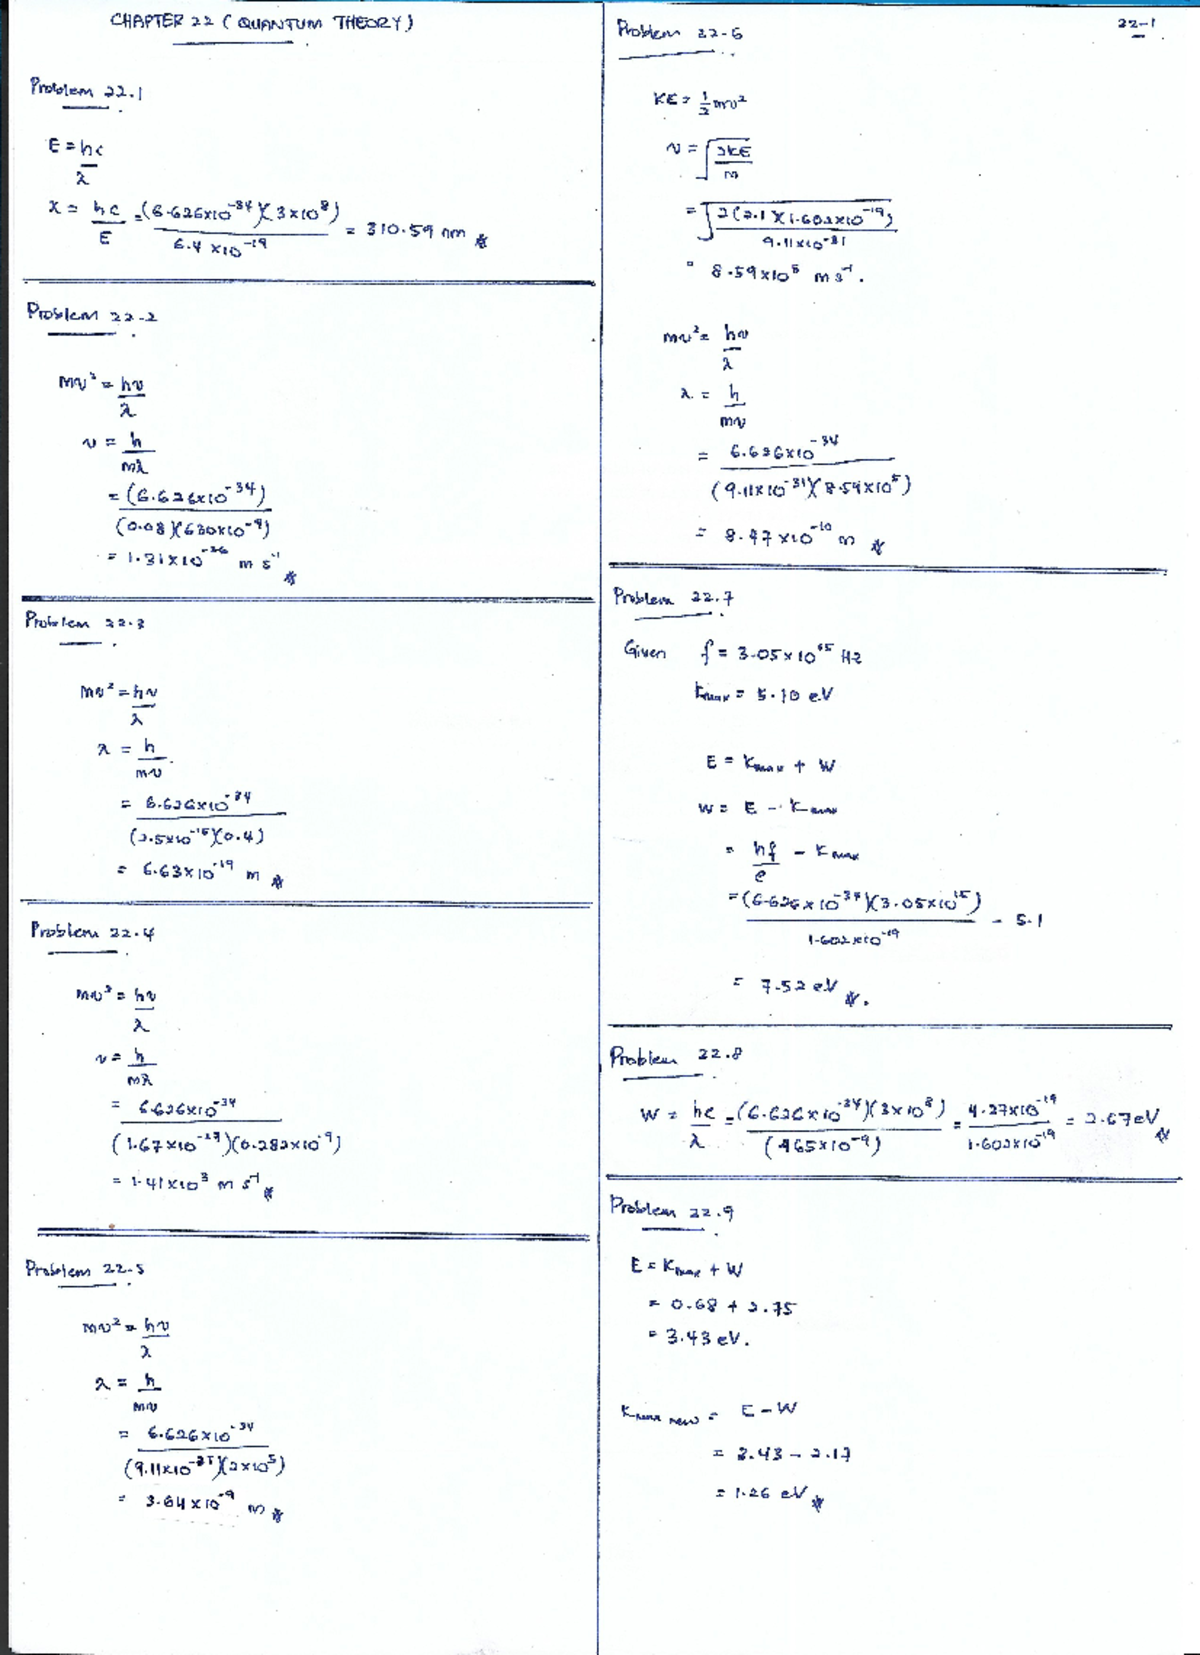 CHAPTER 22 ( QUANTUM THEORY )
Problem 22.1
E = hc/λ
λ = hc/E = (6.626×10^-34)(3×10^8)/6.4×10^-19 = 310.59 nm
Problem 22-2
mv² = hv/λ
v = h/mλ
= (6.626×10^-34)/(0.08)(630×10^-9)
= 1.31×10^-26 m s^-1
Problem 22.3
mv² = hv/λ
λ = h/mv
= 6.626×10^-34/(2.5×10^-15)(0.4)
= 6.63×10^-19 m
Problem 22.4
mv² = hv/λ
v = h/mλ
= 6.626×10^-34/(1.67×10^-27)(0.282×10^-9)
= 1.41×10^3 m s^-1
Problem 22-5
mv² = hv/λ
λ = h/mv
= 6.626×10^-34/(9.11×10^-31)(2×10^5)
= 3.64×10^-9 m
22-1
Problem 22-6
KE = ½mv²
v = √(2KE/m)
= √(2(2.1)(1.602×10^-19)/9.11×10^-31)
= 8.59×10^5 m s^-1.
mv² = hv/λ
λ = h/mv
= 6.626×10^-34/(9.11×10^-31)(8.59×10^5)
= 8.47×10^-10 m
Problem 22.7
Given f = 3.05×10^15 Hz
Kmax = 5.10 eV
E = Kmax + W
W = E - Kmax
= hf/e - Kmax
= (6.626×10^-34)(3.05×10^15)/1.602×10^-19 - 5.1
= 7.52 eV
Problem 22.8
W = hc/λ = (6.626×10^-34)(3×10^8)/(465×10^-9) = 4.27×10^-19/1.602×10^-19 = 2.67 eV
Problem 22.9
E = Kmax + W
= 0.68 + 2.75
= 3.43 eV.
Kmax new = E - W
= 3.43 - 2.17
= 1.26 eV